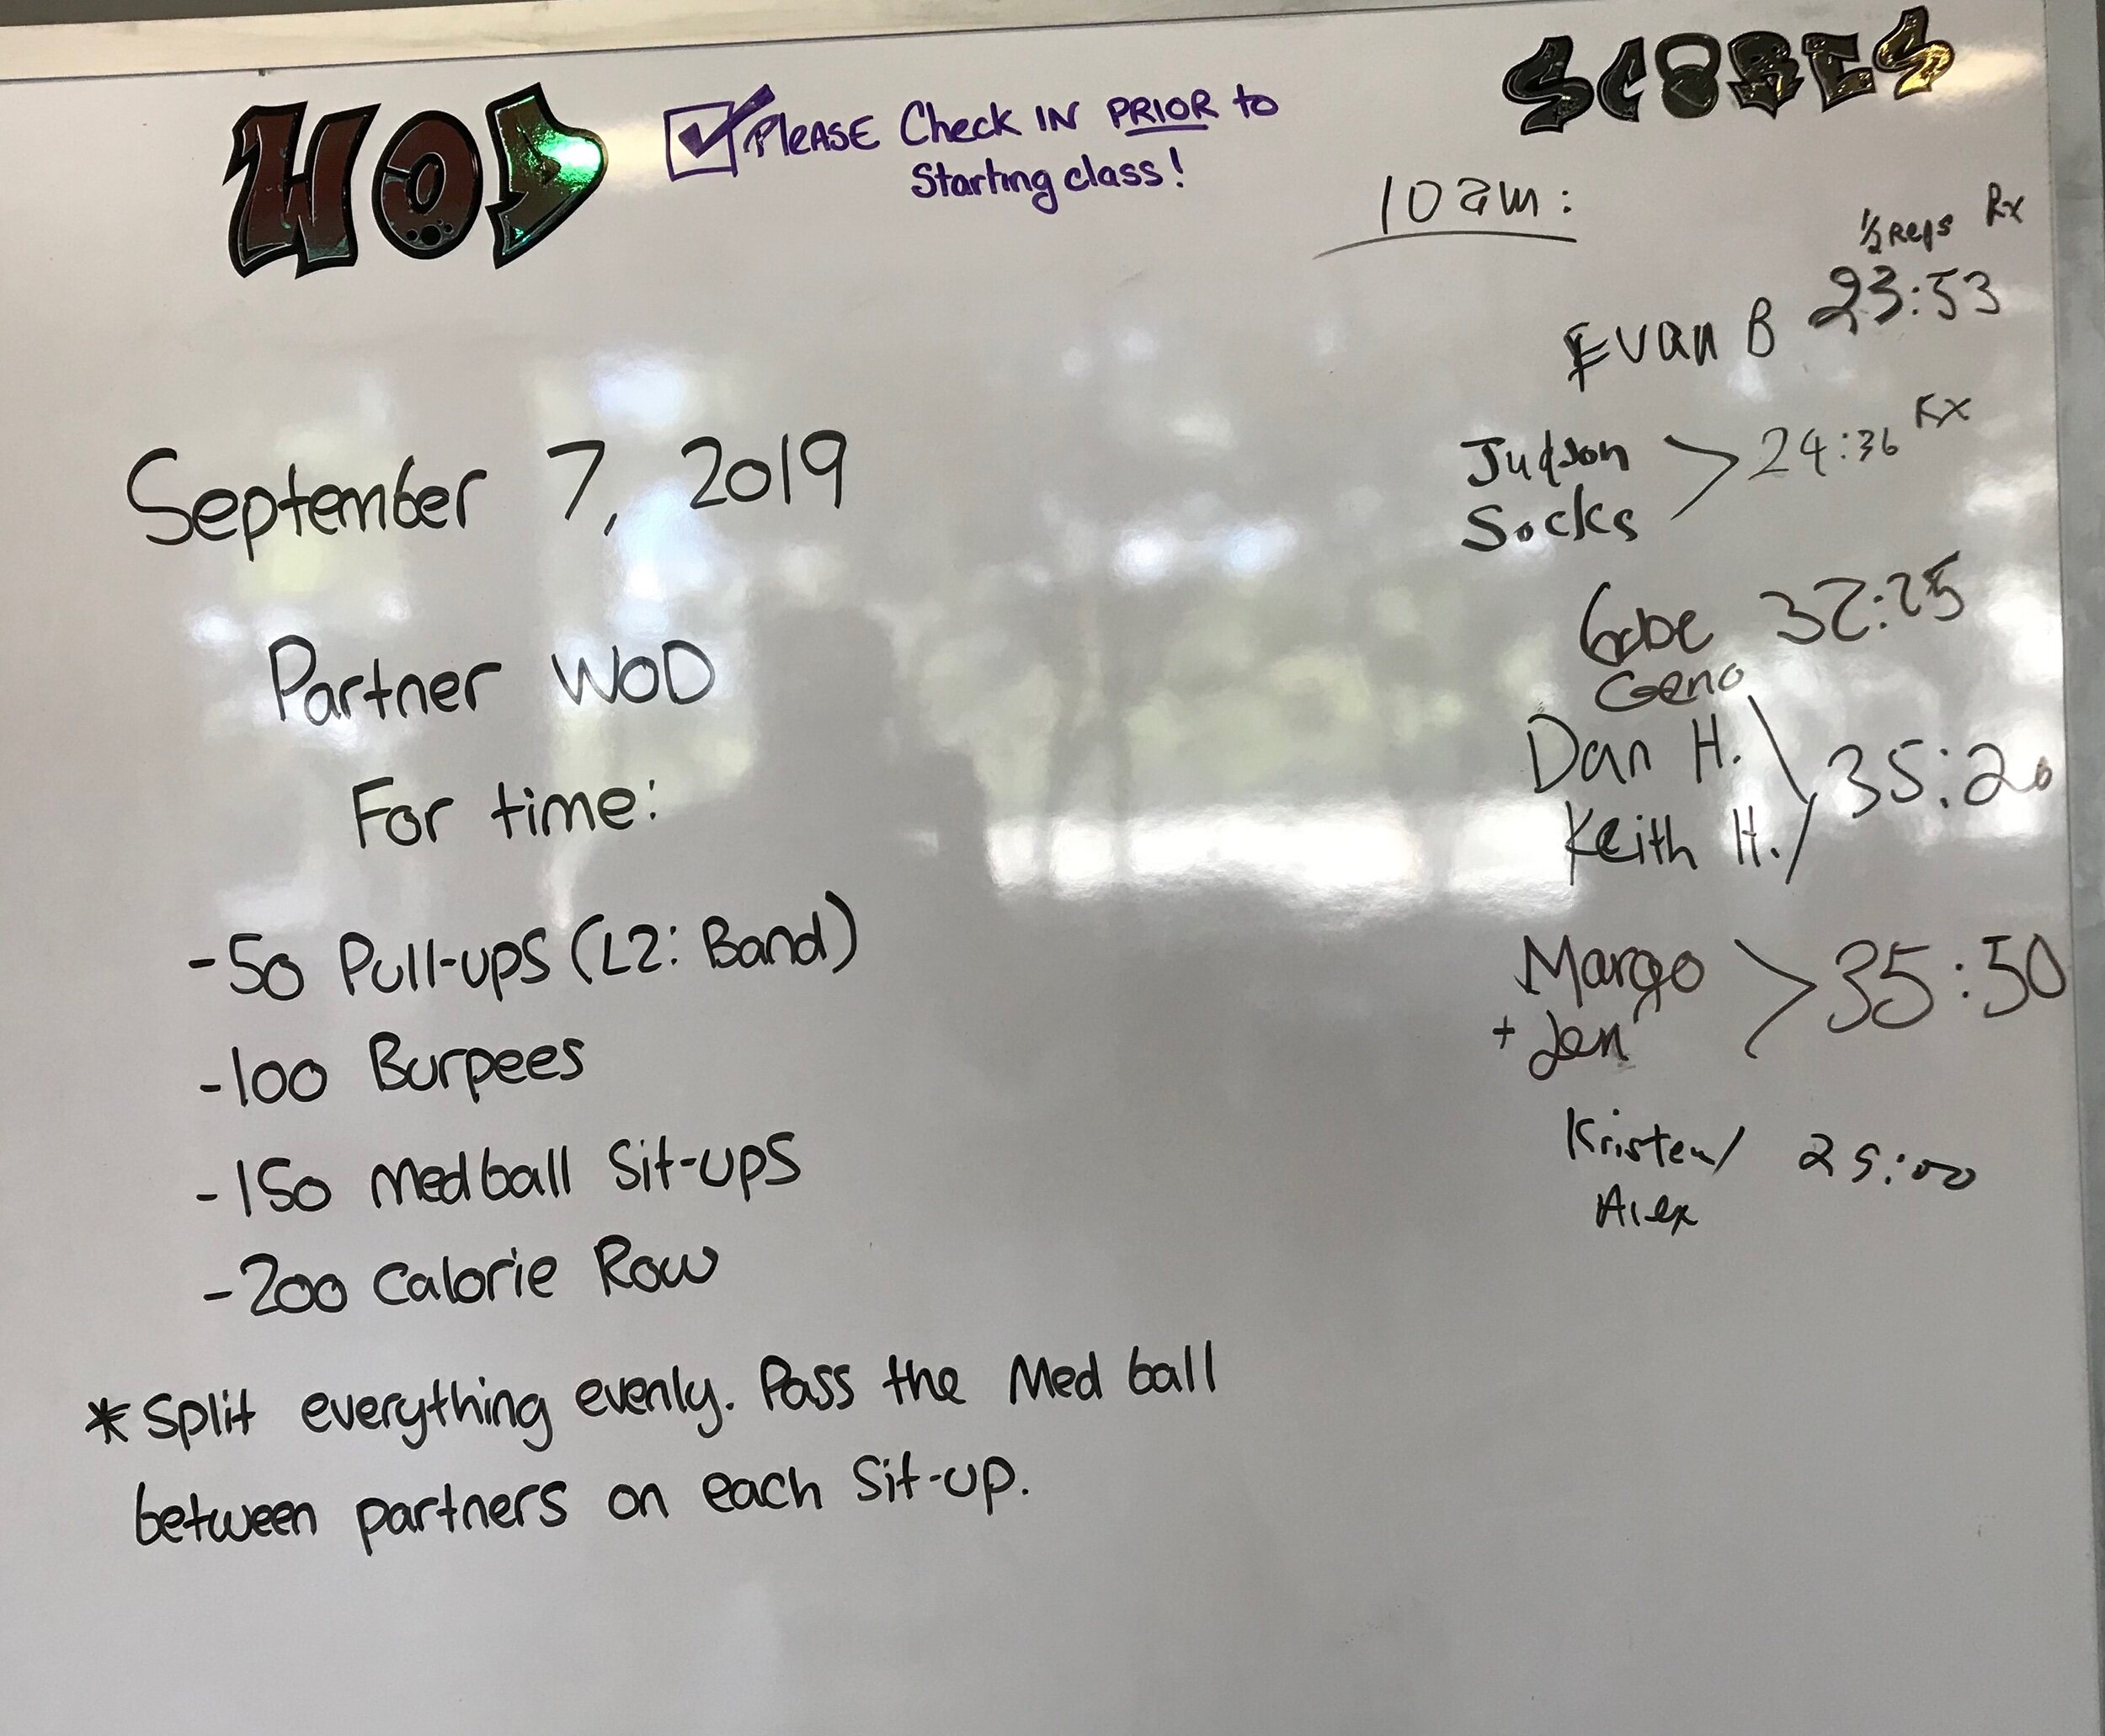 WOD
PleASE Check IN PRIOR to
Starting class!
September 7, 2019
Partner WOD
For time:
-50 Pull-ups (L2: Band)
-100 Burpees
-150 Medball Sit-ups
-200 Calorie Row
*Split everything evenly. Pass the Med ball
between partners on each Sit-up.
SCORES
10am:
1/2 Reps Rx
Evan B 23:53
Judson > 24:36 Rx
Socks
Gabe 32:25
Geno
Dan H. 35:20
Keith H.
Margo > 35:50
+ Jen
Kristen/
Alex